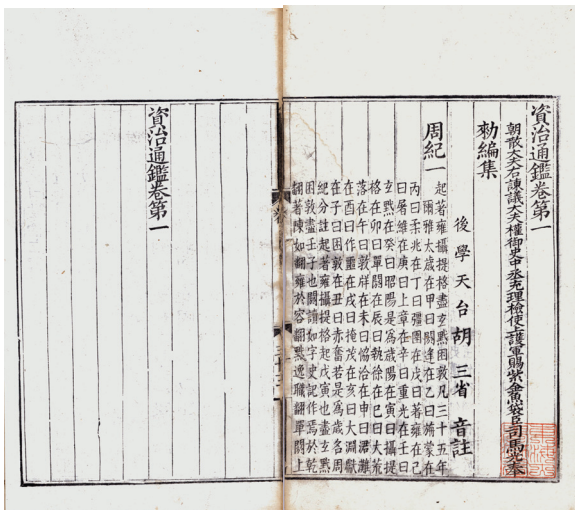 資治通鑑卷第一
朝散大夫右諫議大夫權御史中丞充理檢使上護軍賜紫金魚袋臣司馬光奉
勑編集
後學天台胡三省音註
周紀一
起著雍攝提格盡玄黓困敦凡三十五年
爾雅太歲在甲曰閼逢在乙曰旃蒙在
丙曰柔兆在丁曰彊圉在戊曰著雍在己
曰屠維在庚曰上章在辛曰重光在壬曰
玄黓在癸曰昭陽是為歲陽在寅曰攝提
格在卯曰單閼在辰曰執徐在巳曰大荒
落在午曰敦牂在未曰協洽在申曰涒灘
在酉曰作噩在戌曰掩茂在亥曰大淵獻
在子曰困敦在丑曰赤奮若是為歲名周
紀分註起著雍攝提格起戊寅也盡玄黓
困敦盡壬子也閼讀如字史記作焉於乾
翻著陳如翻雍於容翻黓逸職翻單閼上
資治通鑑卷第一